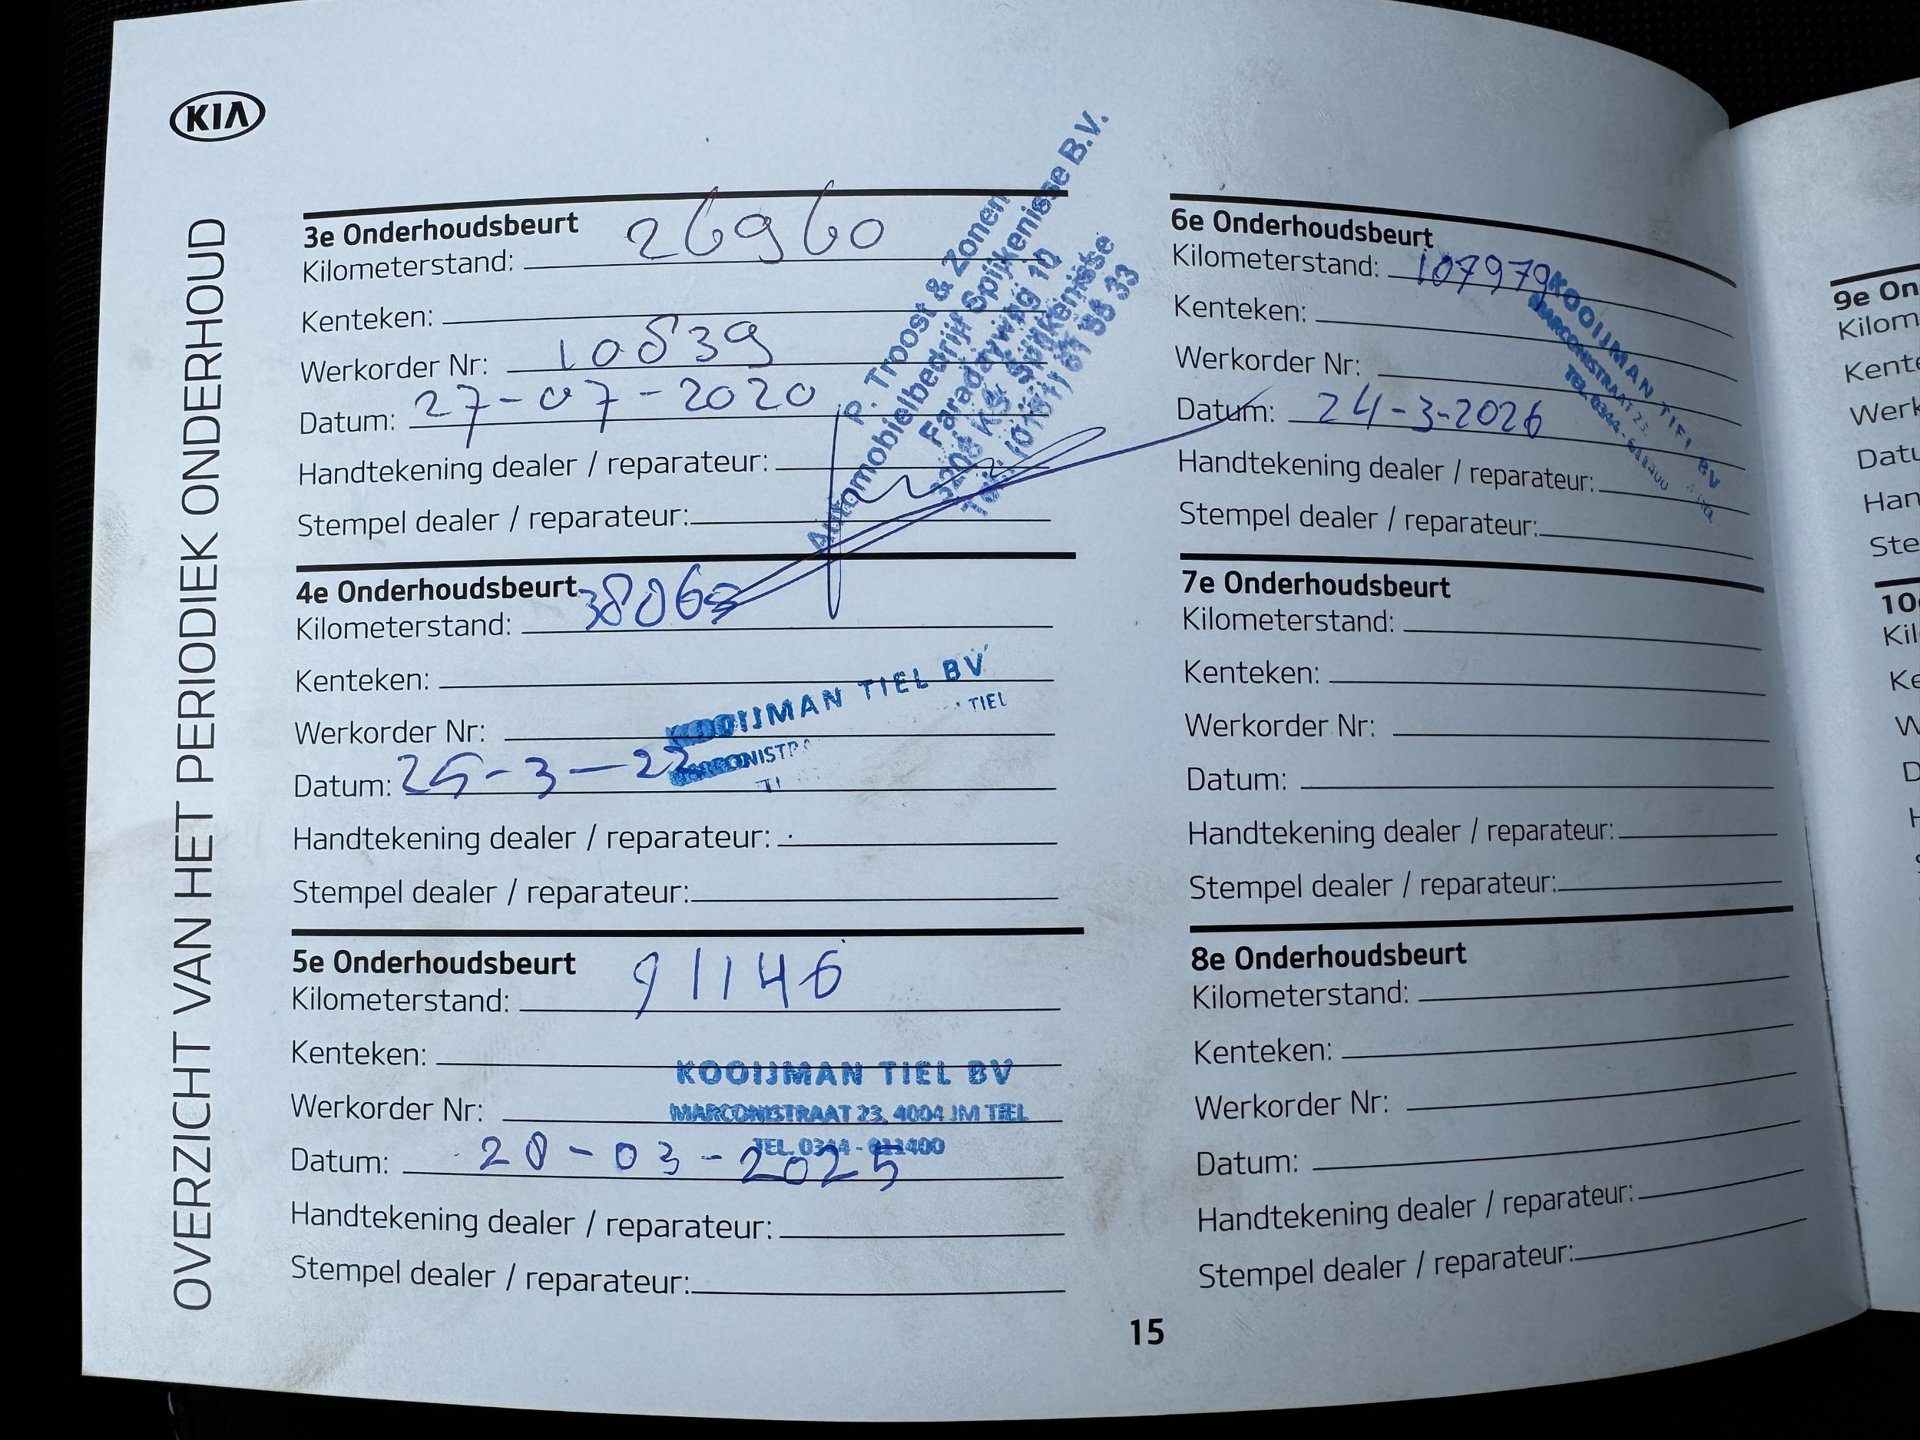 KIA
OVERZICHT VAN HET PERIODIEK ONDERHOUD
3e Onderhoudsbeurt
Kilometerstand: 26960
Kenteken:
Werkorder Nr: 10839
Datum: 27-07-2020
Handtekening dealer / reparateur:
Stempel dealer / reparateur:
P. Troost & Zonen
Automobielbedrijf Spijkenisse B.V.
Faradayweg 10
Spijkenisse
4e Onderhoudsbeurt
Kilometerstand:
Kenteken:
Werkorder Nr:
Datum: 25-3-22
Handtekening dealer / reparateur:
Stempel dealer / reparateur:
KOOIJMAN TIEL BV
TIEL
5e Onderhoudsbeurt
Kilometerstand: 91146
Kenteken:
Werkorder Nr:
Datum: 20-03-2025
Handtekening dealer / reparateur:
Stempel dealer / reparateur:
KOOIJMAN TIEL BV
MARCONISTRAAT 23, 4004 JM TIEL
TEL. 0344 - 611400
6e Onderhoudsbeurt
Kilometerstand: 107979
Kenteken:
Werkorder Nr:
Datum: 24-3-2026
Handtekening dealer / reparateur:
Stempel dealer / reparateur:
KOOIJMAN TIEL BV
MARCONISTRAAT 23
TEL. 0344 - 611400
7e Onderhoudsbeurt
Kilometerstand:
Kenteken:
Werkorder Nr:
Datum:
Handtekening dealer / reparateur:
Stempel dealer / reparateur:
8e Onderhoudsbeurt
Kilometerstand:
Kenteken:
Werkorder Nr:
Datum:
Handtekening dealer / reparateur:
Stempel dealer / reparateur:
15
9e On
Kilom
Kente
Werk
Datu
Han
Ste
Kil
Ke
W
D
H